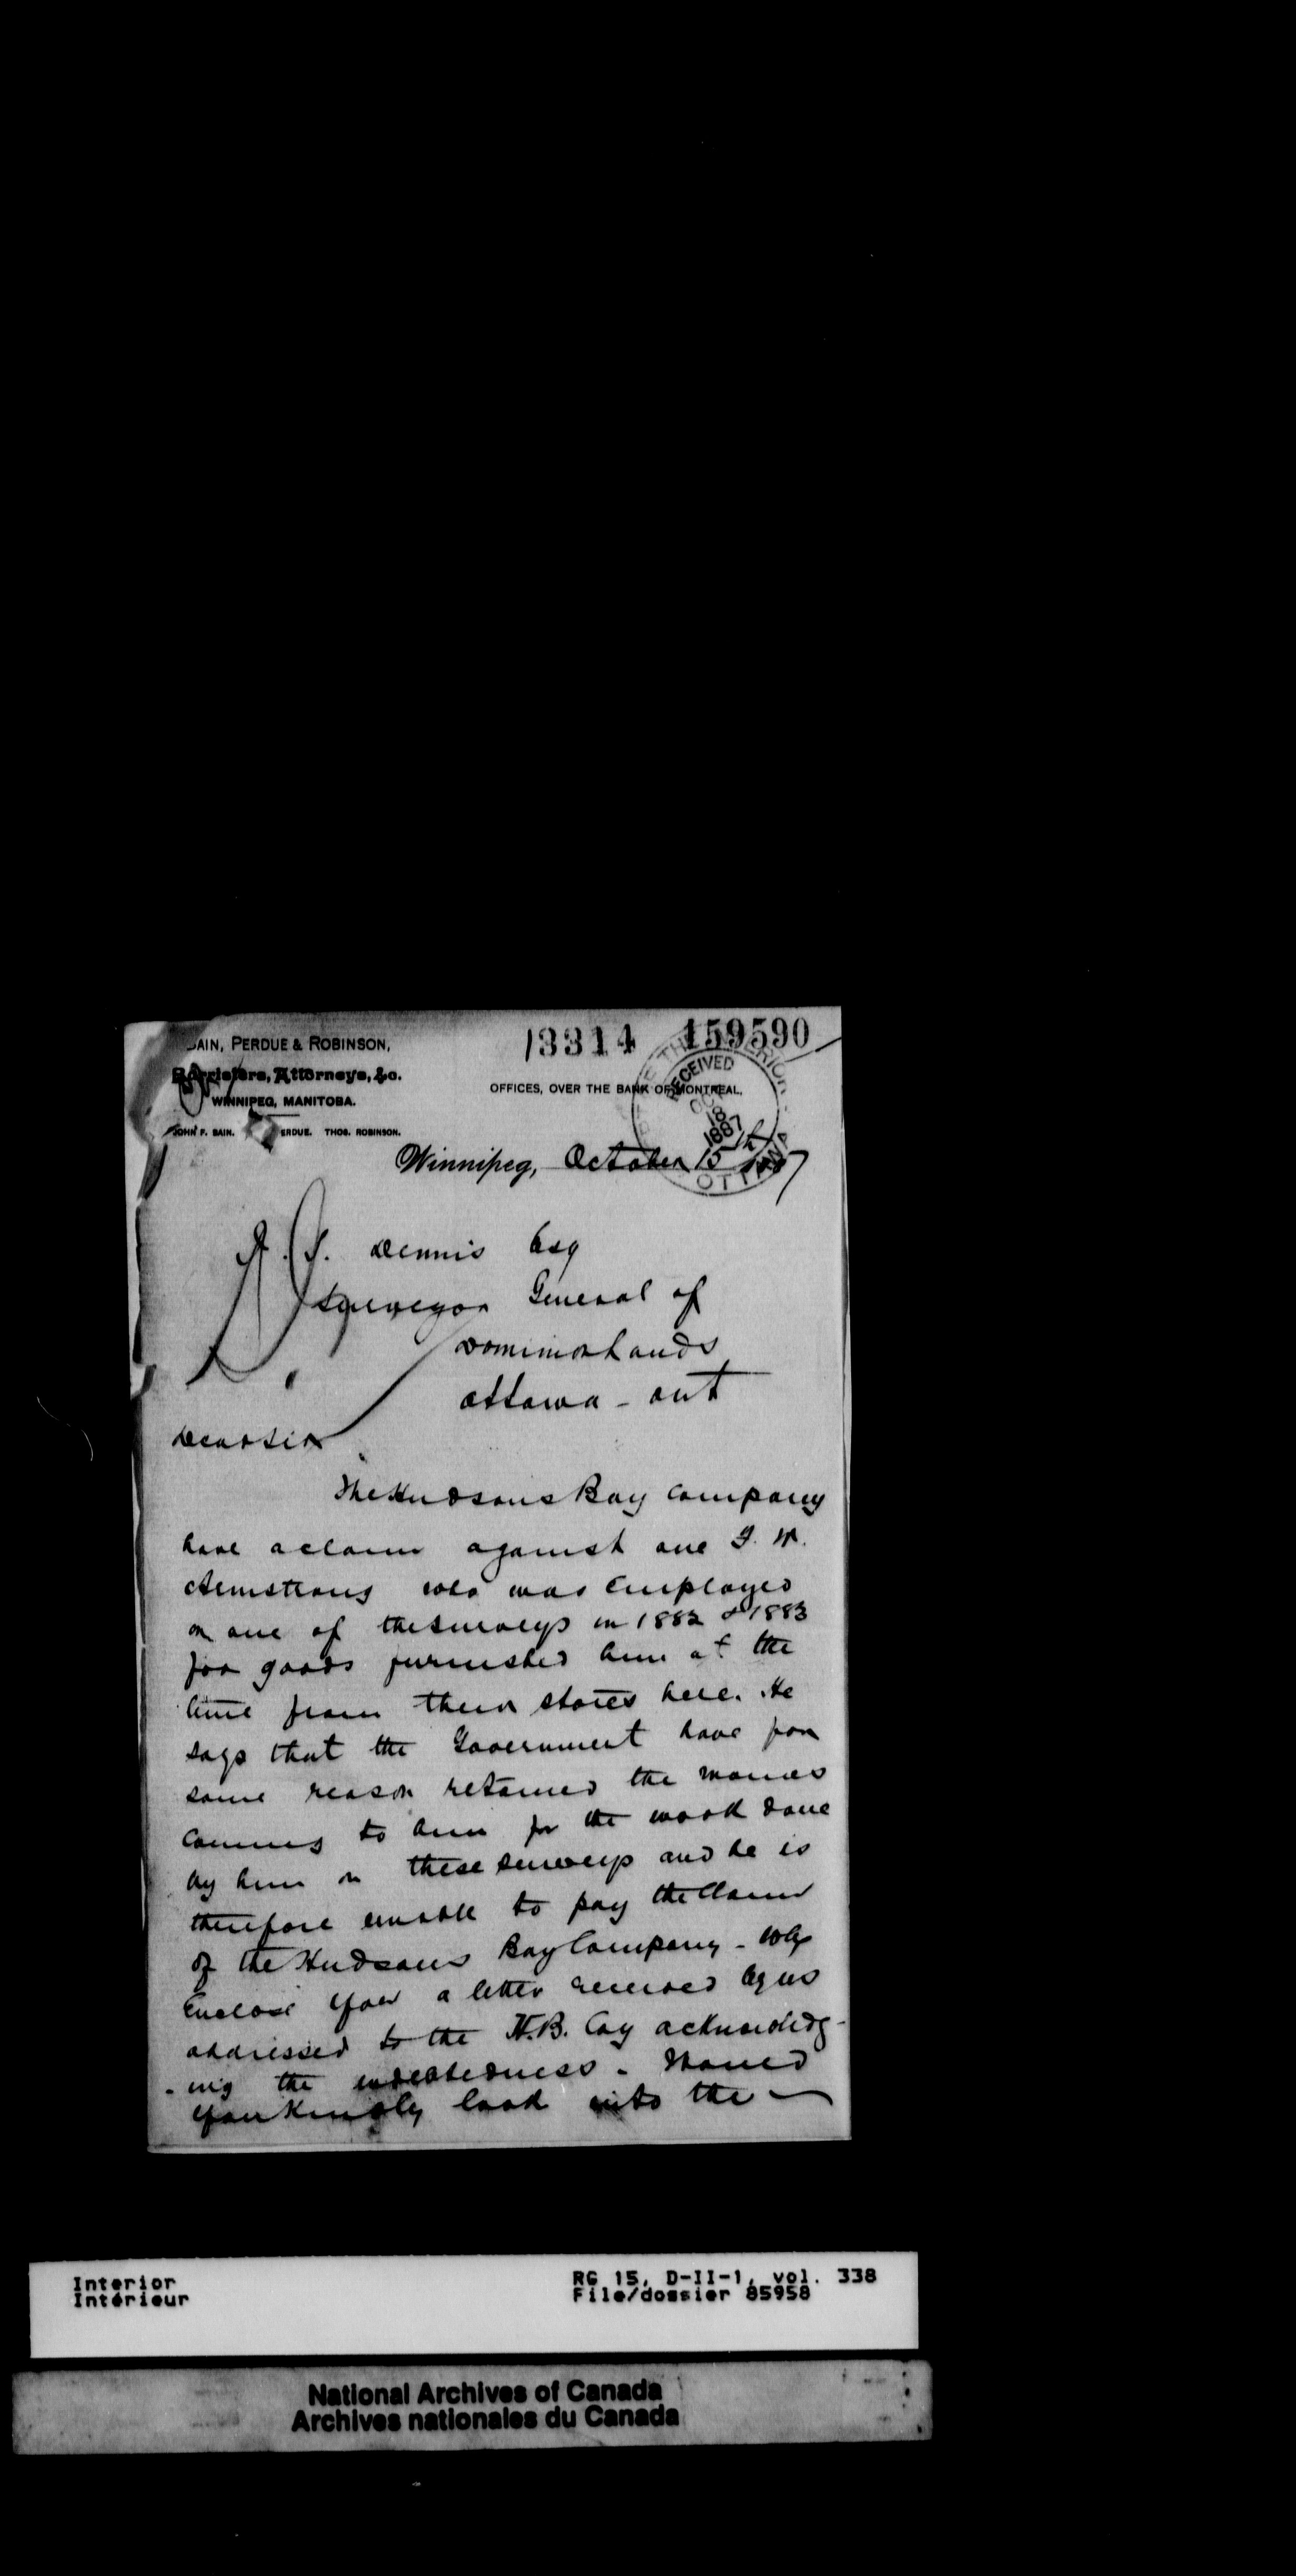 BAIN, PERDUE & ROBINSON,
Barristers, Attorneys, &c.
WINNIPEG, MANITOBA.
JOHN F. BAIN. PERDUE. THOS. ROBINSON.
13314 159590
OFFICES, OVER THE BANK OF MONTREAL,
RECEIVED
OCT
18
1887
OTTAWA
Winnipeg, October 15th 1887
Dennis Esq
Surveyor General of
Dominion Lands
Ottawa - Ont
Dear Sir
The Hudsons Bay Company
have a claim against one J. W.
Armstrong who was employed
on one of the surveys in 1882 & 1883
for goods furnished him at the
time from their stores here. He
says that the Government have for
some reason retained the monies
coming to him for the work done
by him on these surveys and he is
therefore unable to pay the claim
of the Hudsons Bay Company - We
enclose you a letter received by us
addressed to the H.B. Coy acknowledg-
-ing the indebtedness - Would
you kindly look into the
Interior
Intérieur
RG 15, D-II-1, vol. 338
File/dossier 85958
National Archives of Canada
Archives nationales du Canada